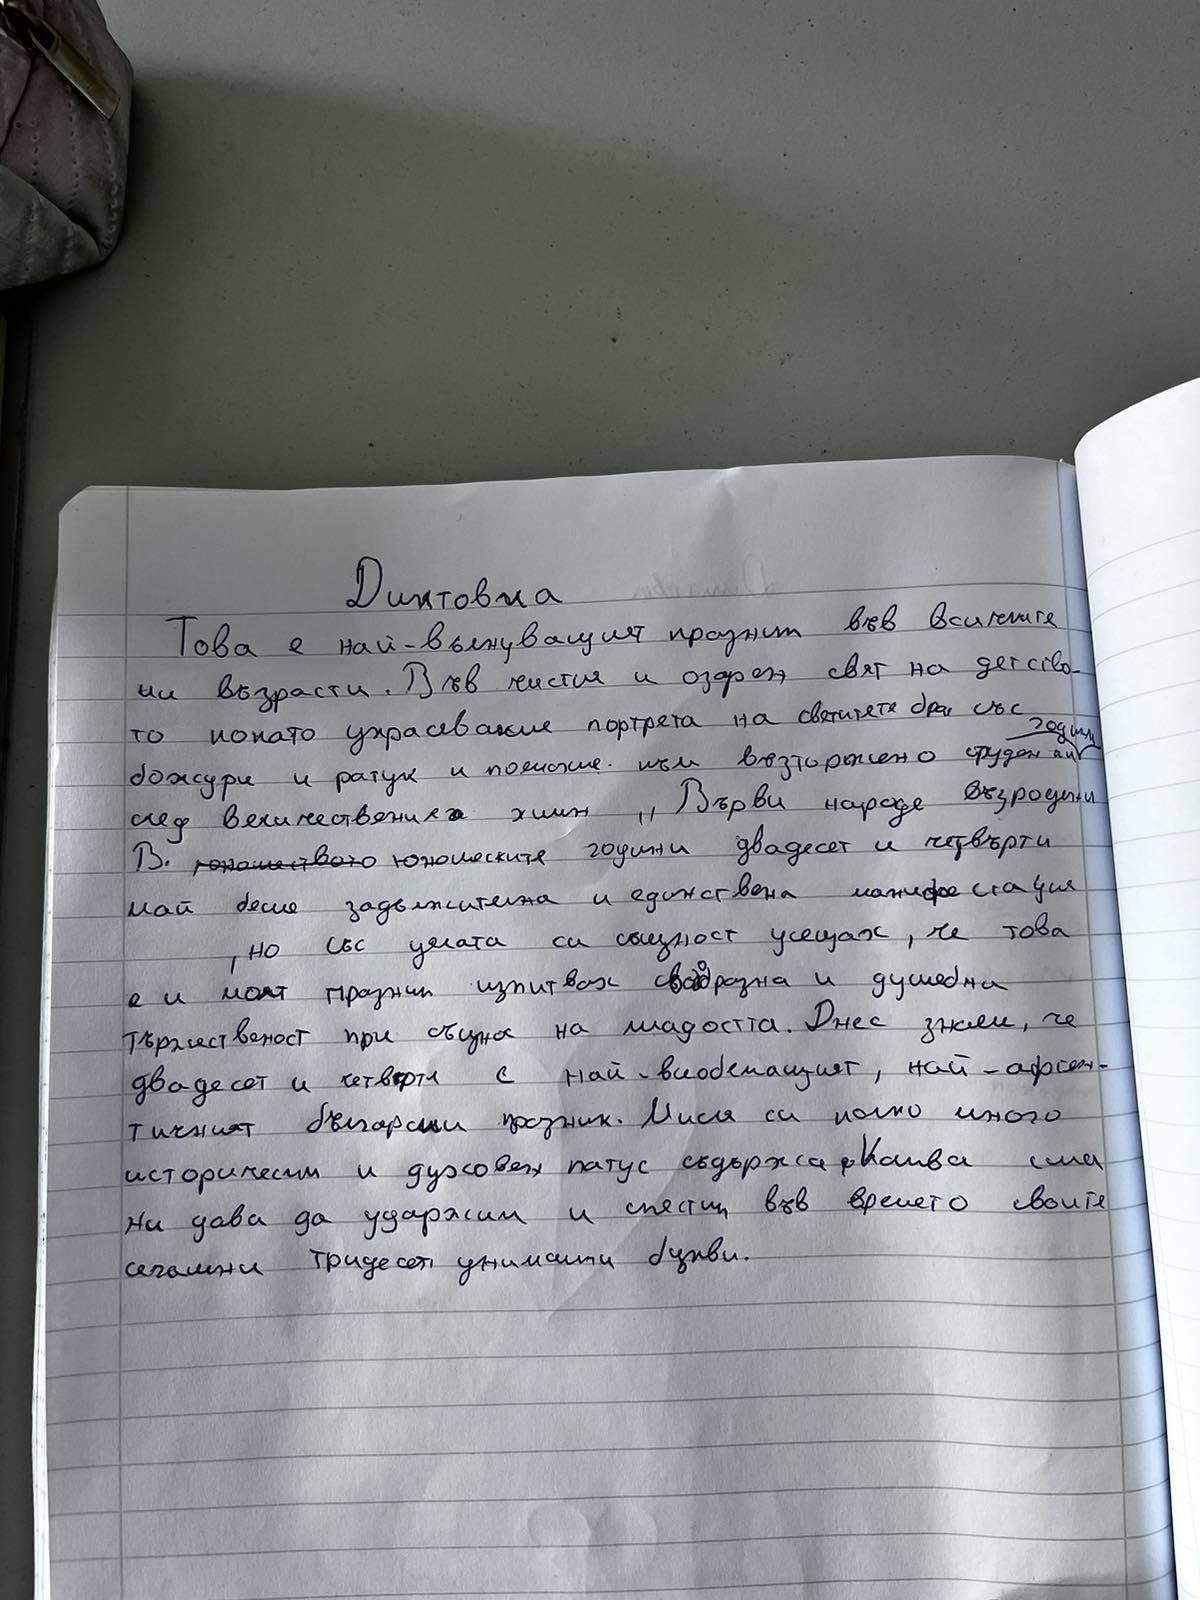 Диктовка
Това е най-вълнуващият празник във всичките
ни възрасти. Във чистия и озарен свят на детство-
то когато украсявахме портрета на светите братя със
години
божури и ратук и пеехме към възторжено студен
след величествения химн „Върви народе възродени
В. юношеството юношеските години двадесет и четвърти
май беше задължителна и единствена манифестация
, но със цялата си същност усещах, че това
е и моят празник изпитвах свообразна и душевна
тържественост при съзна на младостта. Днес знаем, че
двадесет и четвърти е най-, най-
тичният български празник. Мисля си колко много
исторически и духовен патус съдържа. Каква сила
ни дава да удържим и спестим във времето своите
сегашни тридесет уникални букви.